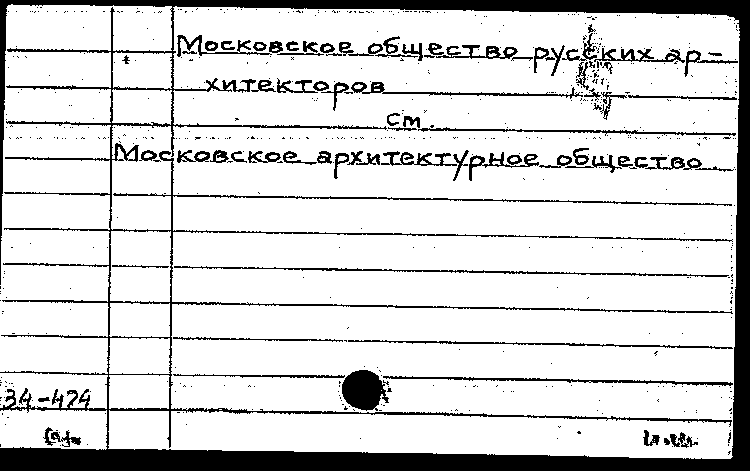 Московское общество русских ар-
хитекторов
см.
Московское архитектурное общество.
34-474